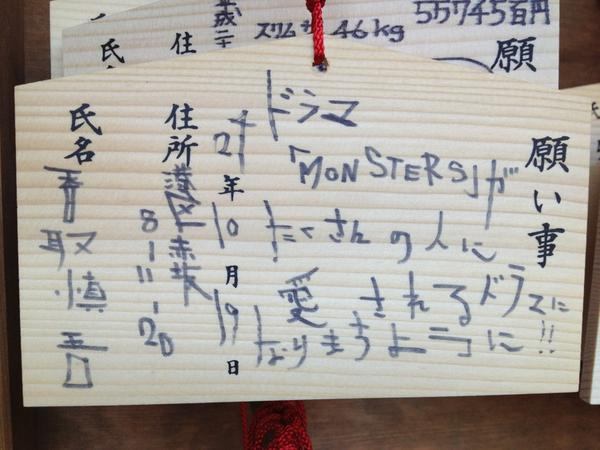 平成二十
住
氏
スリム
46kg
5万745百円
願
願い事
ドラマ
「MONSTERS」が
たくさんの人に
愛されるドラマに
なりますように!!
24年10月19日
住所 港区赤坂8-11-20
氏名 香取慎吾